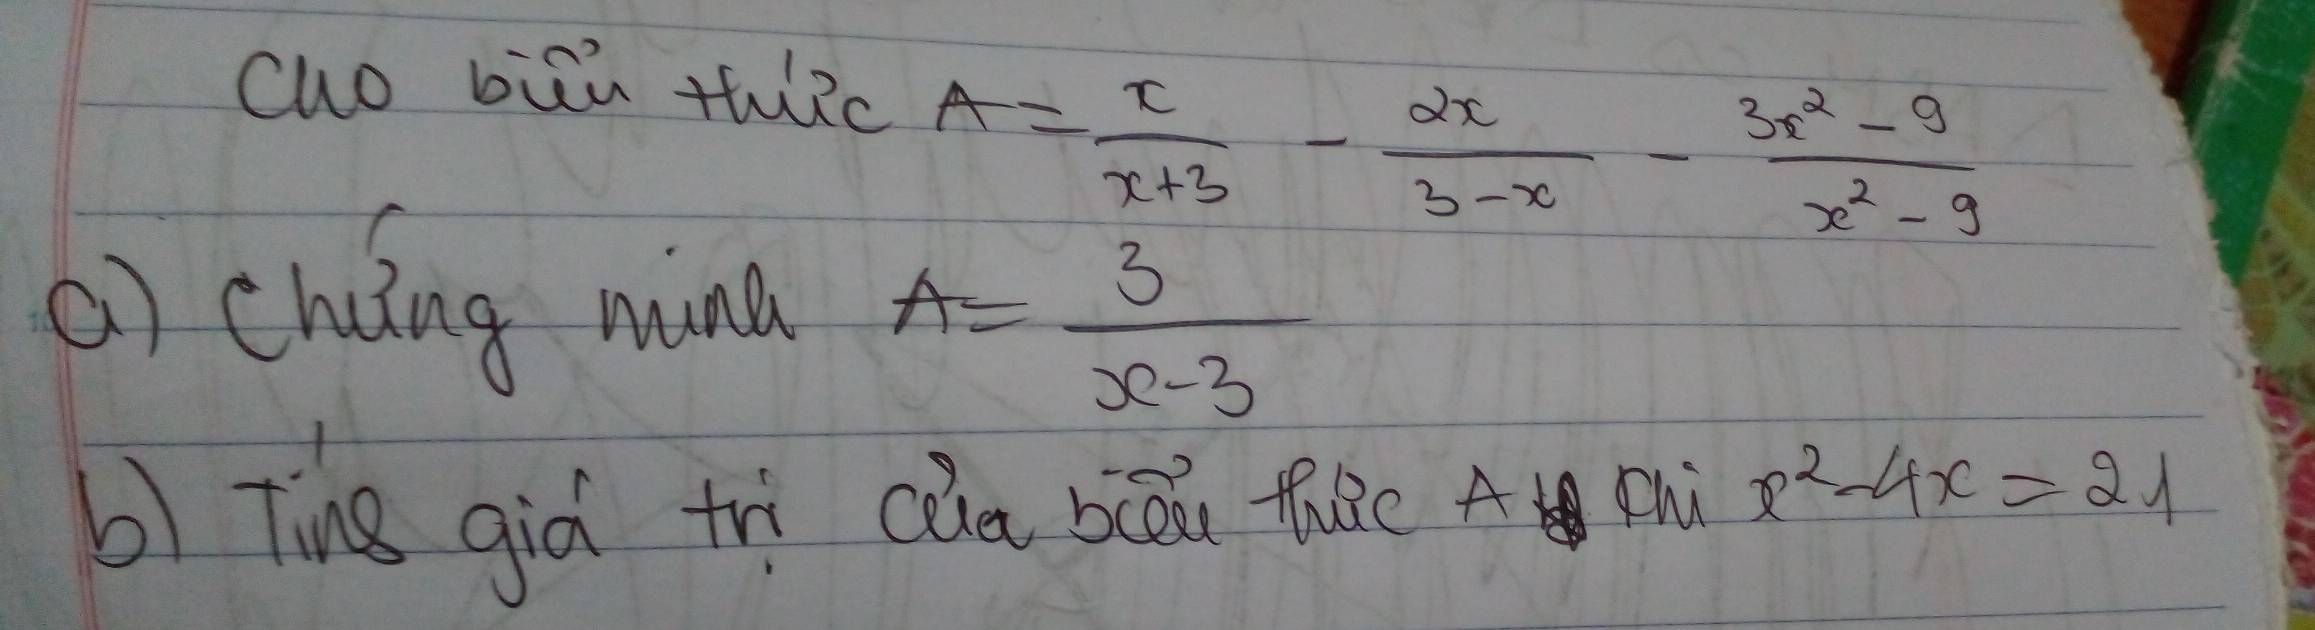 Cho biểu thức A = x/(x+3) - 2x/(3-x) - (3x² - 9)/(x² - 9)
a) Chứng minh A = 3/(x-3)
b) Tính giá trị của biểu thức A khi x² - 4x = 21